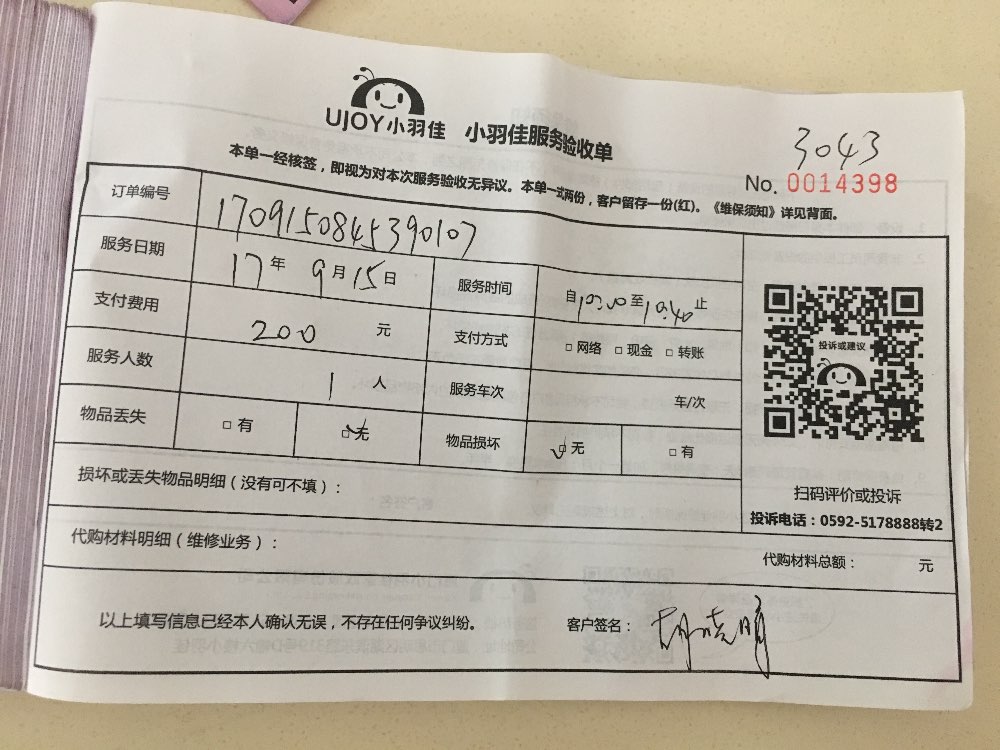 UJOY小羽佳 小羽佳服务验收单
3043
No. 0014398
本单一经核签，即视为对本次服务验收无异议。本单一式两份，客户留存一份(红)。《维保须知》详见背面。
订单编号 1709150845390107
服务日期 17年 9月15日 服务时间 自10:00至10:40止
支付费用 200 元 支付方式 □网络 □现金 □转账
服务人数 1 人 服务车次 车/次
物品丢失 □有 ☑无 物品损坏 ☑无 □有
投诉或建议
扫码评价或投诉
投诉电话：0592-5178888转2
损坏或丢失物品明细（没有可不填）：
代购材料明细（维修业务）： 代购材料总额： 元
以上填写信息已经本人确认无误，不存在任何争议纠纷。 客户签名：胡晓明